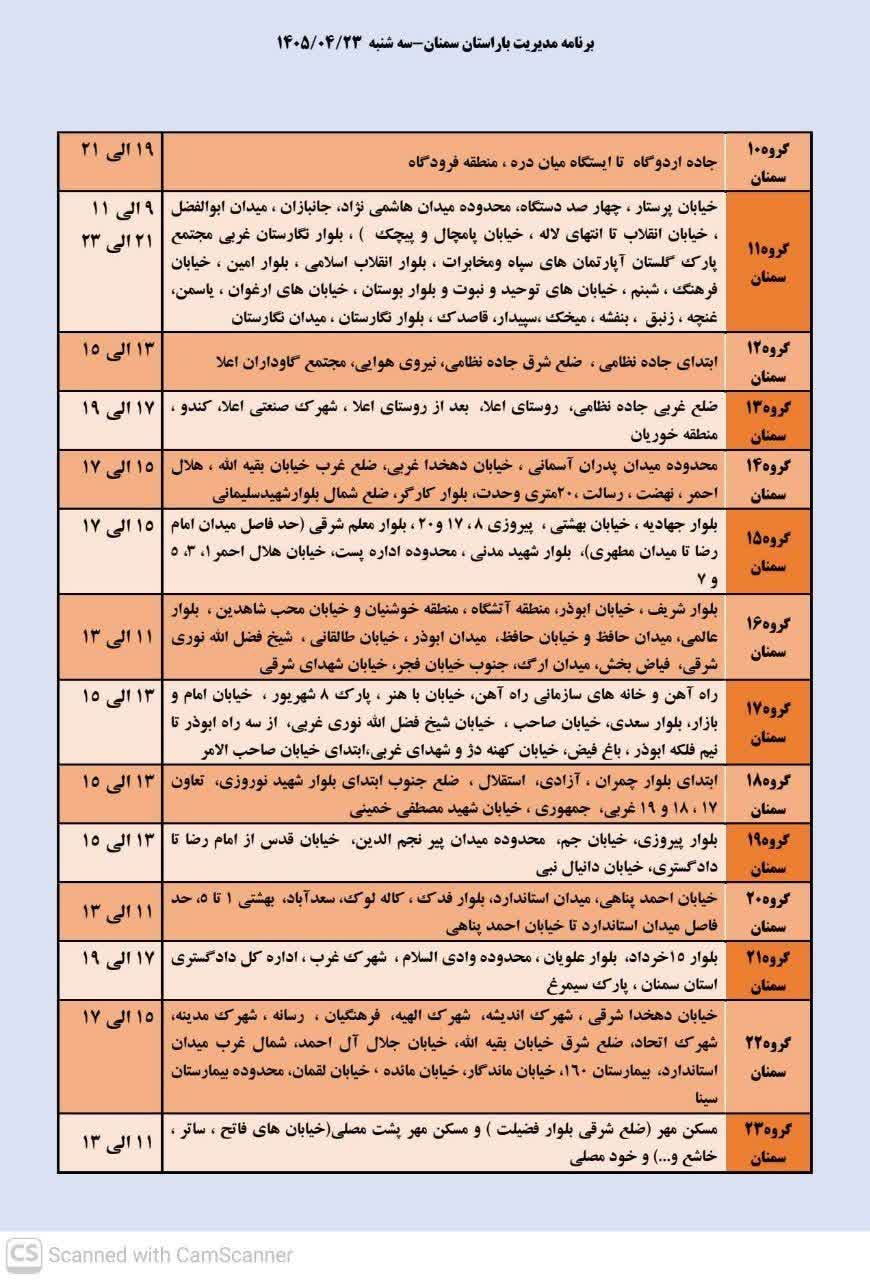 برنامه مدیریت باراستان سمنان-سه شنبه ۱۴۰۵/۰۴/۲۳
گروه۱۰
سمنان
جاده اردوگاه تا ایستگاه میان دره ، منطقه فرودگاه
۱۹ الی ۲۱
گروه۱۱
سمنان
خیابان پرستار ، چهار صد دستگاه، محدوده میدان هاشمی نژاد، جانبازان ، میدان ابوالفضل
، خیابان انقلاب تا انتهای لاله ، خیابان پامچال و پیچک ) ، بلوار نگارستان غربی مجتمع
پارک گلستان آپارتمان های سپاه ومخابرات ، بلوار انقلاب اسلامی ، بلوار امین ، خیابان
فرهنگ ، شبنم ، خیابان های توحید و نبوت و بلوار بوستان ، خیابان های ارغوان ، یاسمن،
غنچه ، زنبق ، بنفشه ، میخک ،سپیدار، قاصدک ، بلوار نگارستان ، میدان نگارستان
۹ الی ۱۱
۲۱ الی ۲۳
گروه۱۲
سمنان
ابتدای جاده نظامی ، ضلع شرق جاده نظامی، نیروی هوایی، مجتمع گاوداران اعلا
۱۳ الی ۱۵
گروه۱۳
سمنان
ضلع غربی جاده نظامی، روستای اعلا، بعد از روستای اعلا ، شهرک صنعتی اعلا، کندو ،
منطقه خوریان
۱۷ الی ۱۹
گروه۱۴
سمنان
محدوده میدان پدران آسمانی ، خیابان دهخدا غربی، ضلع غرب خیابان بقیه الله ، هلال
احمر ، نهضت ، رسالت ،۲۰متری وحدت، بلوار کارگر، ضلع شمال بلوارشهیدسلیمانی
۱۵ الی ۱۷
گروه۱۵
سمنان
بلوار جهادیه ، خیابان بهشتی ، پیروزی ۸ ، ۱۷ و۲۰ ، بلوار معلم شرقی (حد فاصل میدان امام
رضا تا میدان مطهری)، بلوار شهید مدنی ، محدوده اداره پست، خیابان هلال احمر۱، ۳، ۵
و ۷
۱۵ الی ۱۷
گروه۱۶
سمنان
بلوار شریف ، خیابان ابوذر، منطقه آتشگاه ، منطقه خوشنیان و خیابان محب شاهدین ، بلوار
عالمی، میدان حافظ و خیابان حافظ، میدان ابوذر ، خیابان طالقانی ، شیخ فضل الله نوری
شرقی، فیاض بخش، میدان ارگ، جنوب خیابان فجر، خیابان شهدای شرقی
۱۱ الی ۱۳
گروه۱۷
سمنان
راه آهن و خانه های سازمانی راه آهن، خیابان با هنر ، پارک ۸ شهریور ، خیابان امام و
بازار، بلوار سعدی، خیابان صاحب ، خیابان شیخ فضل الله نوری غربی، از سه راه ابوذر تا
نیم فلکه ابوذر ، باغ فیض، خیابان کهنه دژ و شهدای غربی،ابتدای خیابان صاحب الامر
۱۳ الی ۱۵
گروه۱۸
سمنان
ابتدای بلوار چمران ، آزادی، استقلال ، ضلع جنوب ابتدای بلوار شهید نوروزی، تعاون
۱۷ ، ۱۸ و ۱۹ غربی، جمهوری ، خیابان شهید مصطفی خمینی
۱۳ الی ۱۵
گروه۱۹
سمنان
بلوار پیروزی، خیابان جم، محدوده میدان پیر نجم الدین، خیابان قدس از امام رضا تا
دادگستری، خیابان دانیال نبی
۱۳ الی ۱۵
گروه۲۰
سمنان
خیابان احمد پناهی، میدان استاندارد، بلوار فدک ، کاله لوک، سعدآباد، بهشتی ۱ تا ۵، حد
فاصل میدان استاندارد تا خیابان احمد پناهی
۱۱ الی ۱۳
گروه۲۱
سمنان
بلوار ۱۵خرداد، بلوار علویان ، محدوده وادی السلام ، شهرک غرب ، اداره کل دادگستری
استان سمنان ، پارک سیمرغ
۱۷ الی ۱۹
گروه۲۲
سمنان
خیابان دهخدا شرقی ، شهرک اندیشه، شهرک الهیه، فرهنگیان ، رسانه ، شهرک مدینه،
شهرک اتحاد، ضلع شرق خیابان بقیه الله، خیابان جلال آل احمد، شمال غرب میدان
استاندارد، بیمارستان ۱۶۰، خیابان ماندگار، خیابان مائده ، خیابان لقمان، محدوده بیمارستان
سینا
۱۵ الی ۱۷
گروه۲۳
سمنان
مسکن مهر (ضلع شرقی بلوار فضیلت ) و مسکن مهر پشت مصلی(خیابان های فاتح ، ساتر ،
خاشع و...) و خود مصلی
۱۱ الی ۱۳
CS Scanned with CamScanner